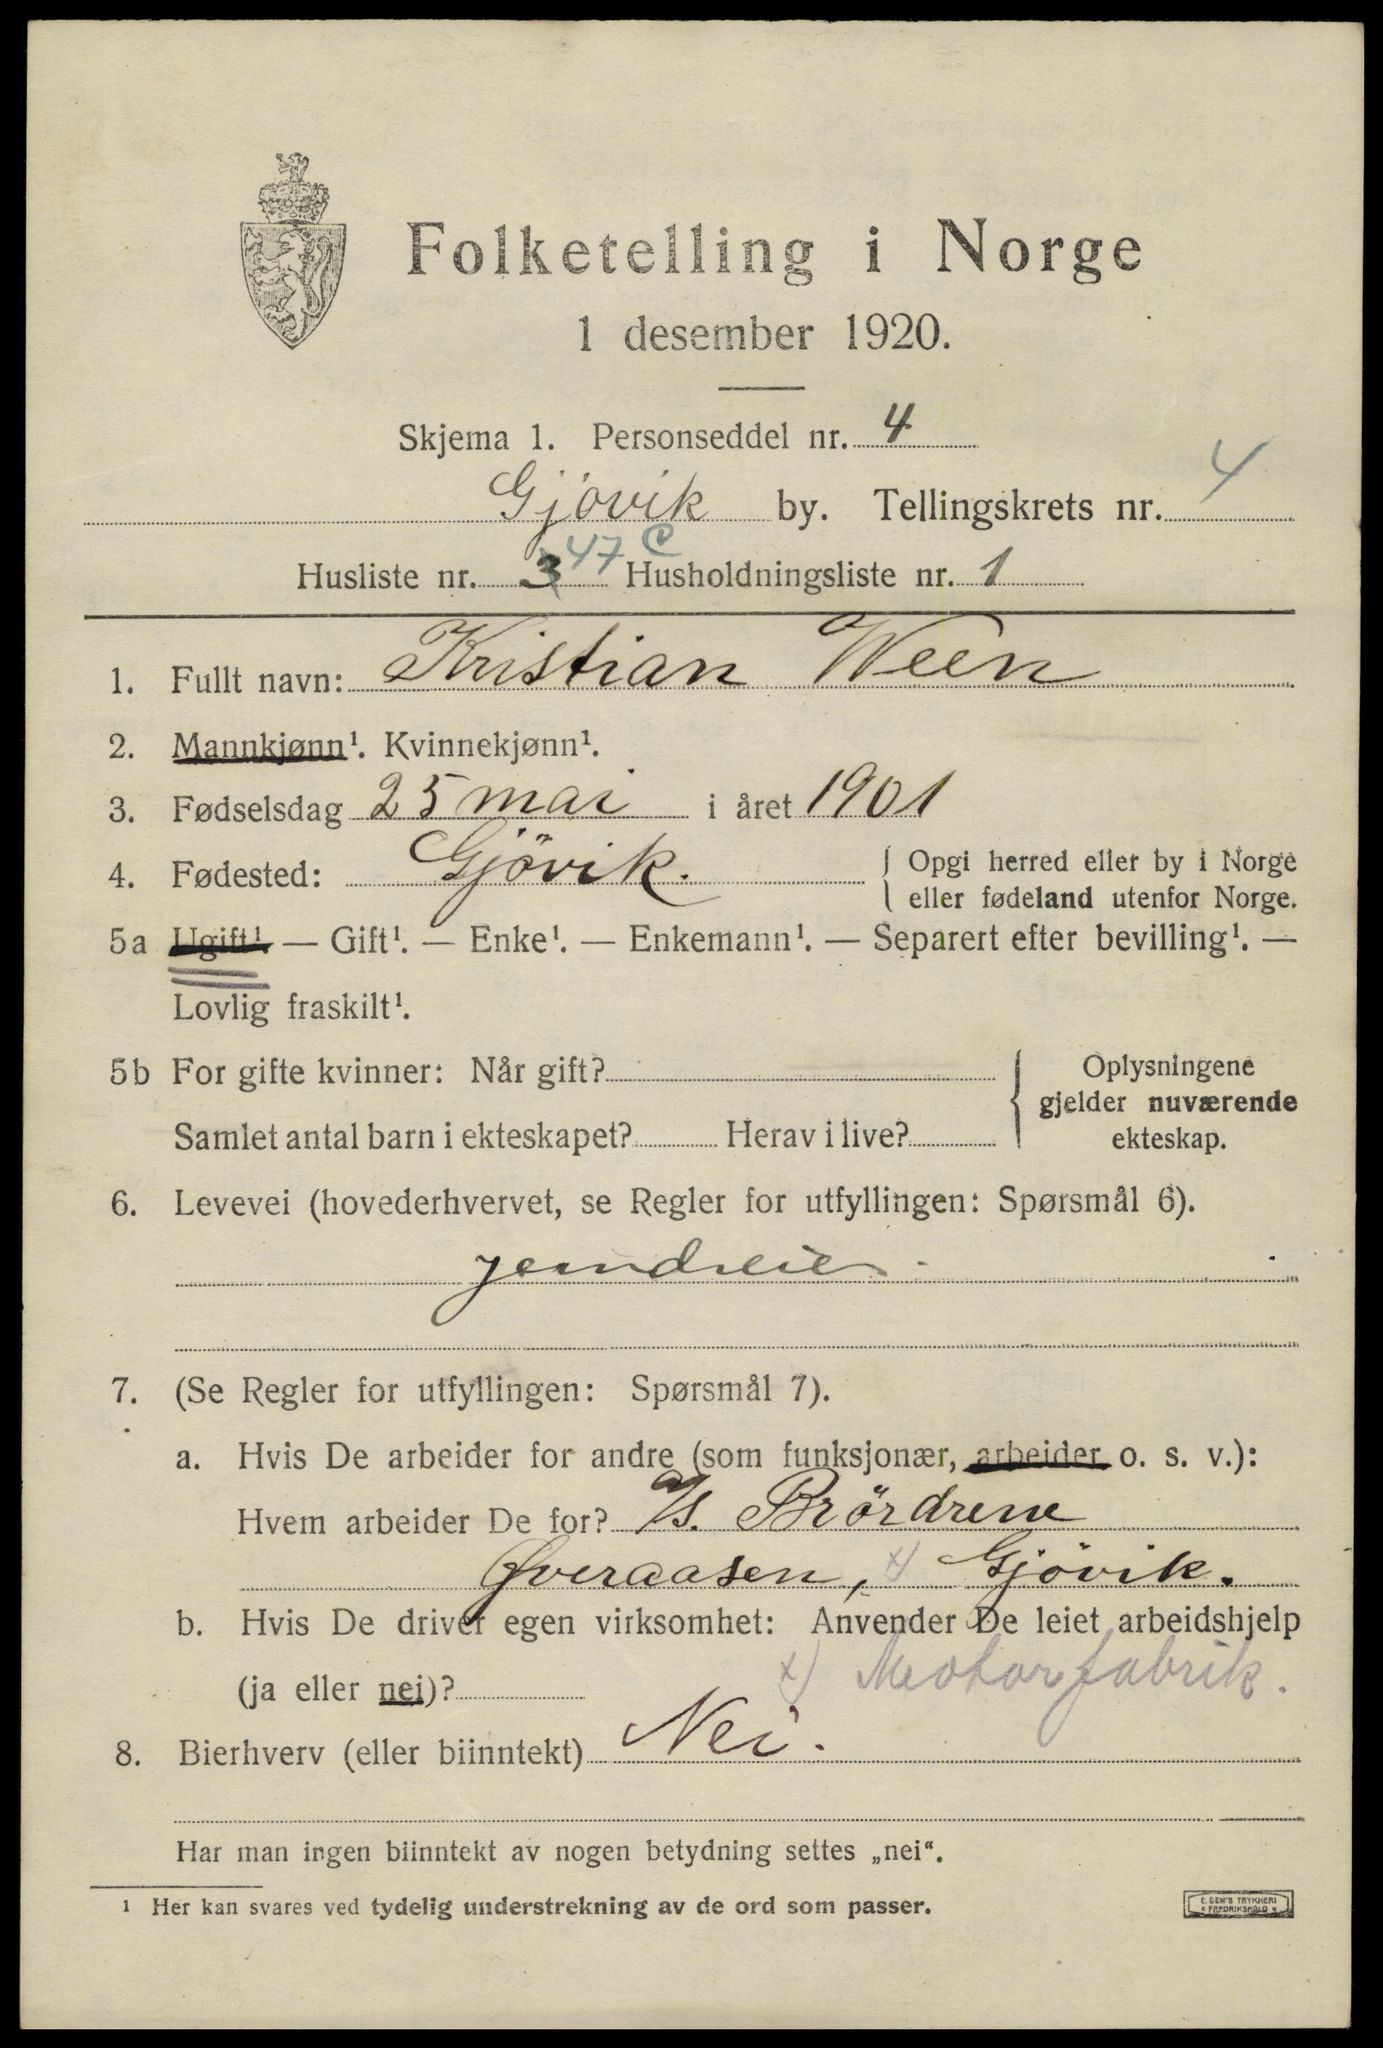 Folketelling i Norge
1 desember 1920.
Skjema 1. Personseddel nr. 4
Gjövik by. Tellingskrets nr. 4
Husliste nr. 3 47 C Husholdningsliste nr. 1
1. Fullt navn: Kristian Ween
2. Mannkjønn¹. Kvinnekjønn¹.
3. Fødselsdag 25 mai i året 1901
4. Fødested: Gjövik. { Opgi herred eller by i Norge
eller fødeland utenfor Norge.
5a Ugift¹. — Gift¹. — Enke¹. — Enkemann¹. — Separert efter bevilling¹. —
Lovlig fraskilt¹.
5b For gifte kvinner: Når gift? { Oplysningene
gjelder nuværende
Samlet antal barn i ekteskapet? Herav i live? ekteskap.
6. Levevei (hovederhvervet, se Regler for utfyllingen: Spørsmål 6).
jerndreier.
7. (Se Regler for utfyllingen: Spørsmål 7).
a. Hvis De arbeider for andre (som funksjonær, arbeider o. s. v.):
Hvem arbeider De for? A/s. Brördrene
Øveraasen, x) Gjövik.
b. Hvis De driver egen virksomhet: Anvender De leiet arbeidshjelp
(ja eller nei)? x) Motorfabrik.
8. Bierhverv (eller biinntekt) Nei.
Har man ingen biinntekt av nogen betydning settes „nei“.
¹ Her kan svares ved tydelig understrekning av de ord som passer.
E. SEM'S TRYKKERI
FREDRIKSHALD